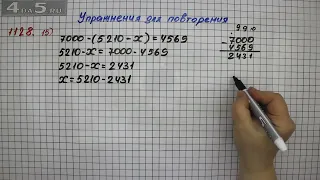 4 ДА 5.RU
Упражнения для повторения
1128. 15)
7000-(5210-x)=4569
5210-x=7000-4569
5210-x=2431
x=5210-2431
9 9 10
- 7000
4569
2431